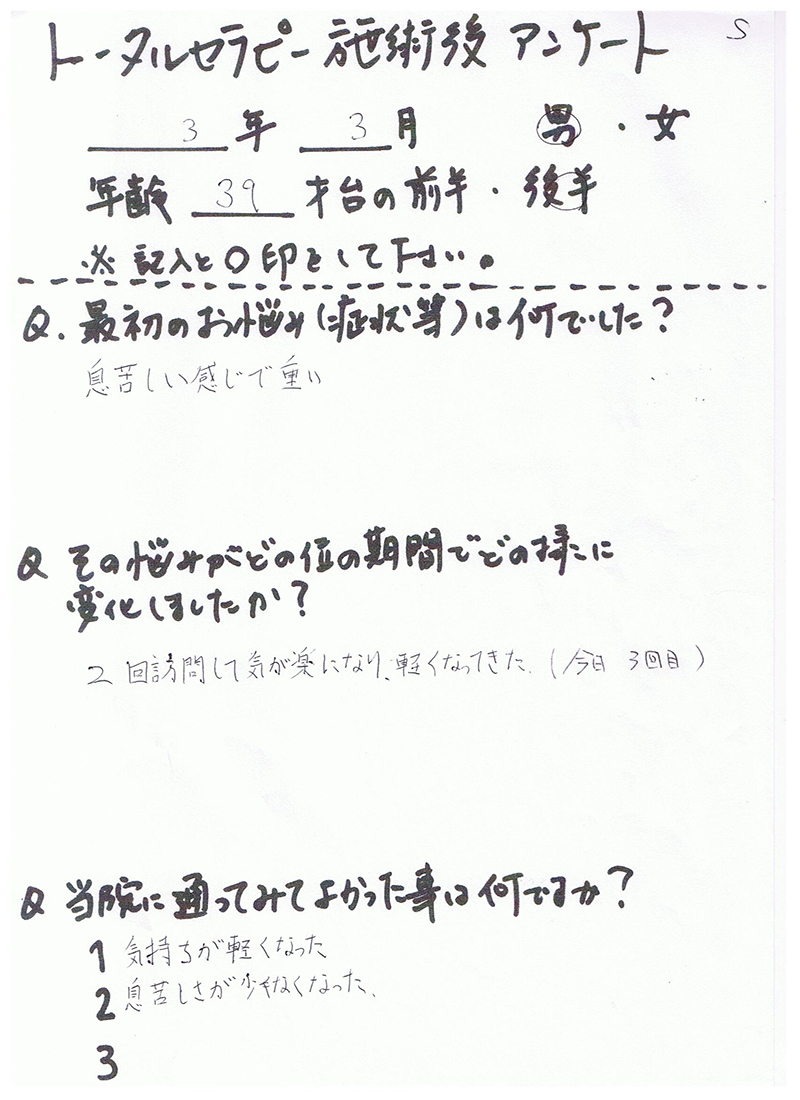 S
トータルセラピー施術後 アンケート
3 年 3 月 男 ・ 女
年齢 39 才台の前半 ・ 後半
※ 記入と〇印をして下さい。
Q. 最初のお悩み(症状等)は何でした?
息苦しい感じで重い
Q その悩みがどの位の期間でどの様に
変化しましたか?
2回訪問して気が楽になり、軽くなってきた。(今日 3回目)
Q 当院に通ってみてよかった事は何ですか?
1 気持ちが軽くなった
2 息苦しさが少なくなった、
3